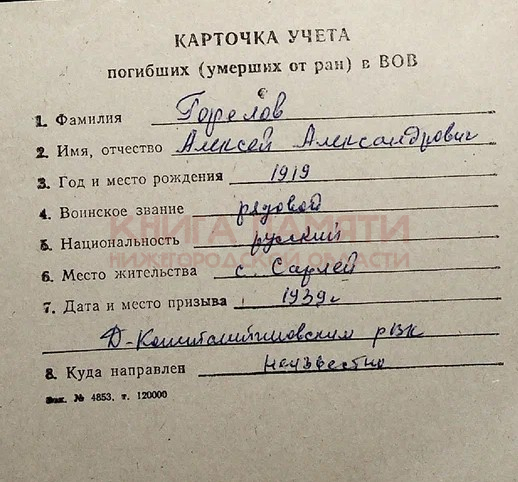 КАРТОЧКА УЧЕТА
погибших (умерших от ран) в ВОВ
1. Фамилия Горелов
2. Имя, отчество Алексей Александрович
3. Год и место рождения 1919
4. Воинское звание рядовой
КНИГА ПАМЯТИ
5. Национальность русский
НИЖЕГОРОДСКОЙ ОБЛАСТИ
6. Место жительства с. Сарлей
7. Дата и место призыва 1939г
Д-Константиновским рвк
8. Куда направлен неизвестно
Зак. № 4853, т. 120000